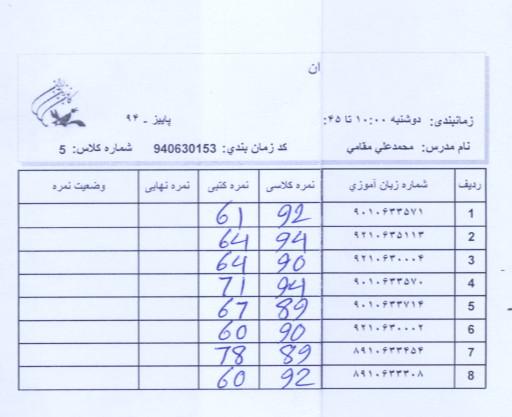 ان
زمانبندی: دوشنبه ۱۰:۰۰ تا ۴۵: پاییز - ۹۴
نام مدرس: محمدعلي مقامي کد زمان بندي: 940630153 شماره کلاس: 5
ردیف شماره زبان آموزي نمره کلاسی نمره کتبی نمره نهایی وضعیت نمره
1 ۹۰۱۰۶۳۳۵۷۱ 92 61
2 ۹۲۱۰۶۳۵۱۱۳ 94 64
3 ۹۲۱۰۶۳۰۰۰۴ 90 64
4 ۹۰۱۰۶۳۳۵۷۰ 94 71
5 ۹۰۱۰۶۳۳۷۱۴ 89 67
6 ۹۲۱۰۶۳۰۰۰۲ 90 60
7 ۸۹۱۰۶۳۳۴۵۴ 89 78
8 ۸۹۱۰۶۳۳۳۰۸ 92 60